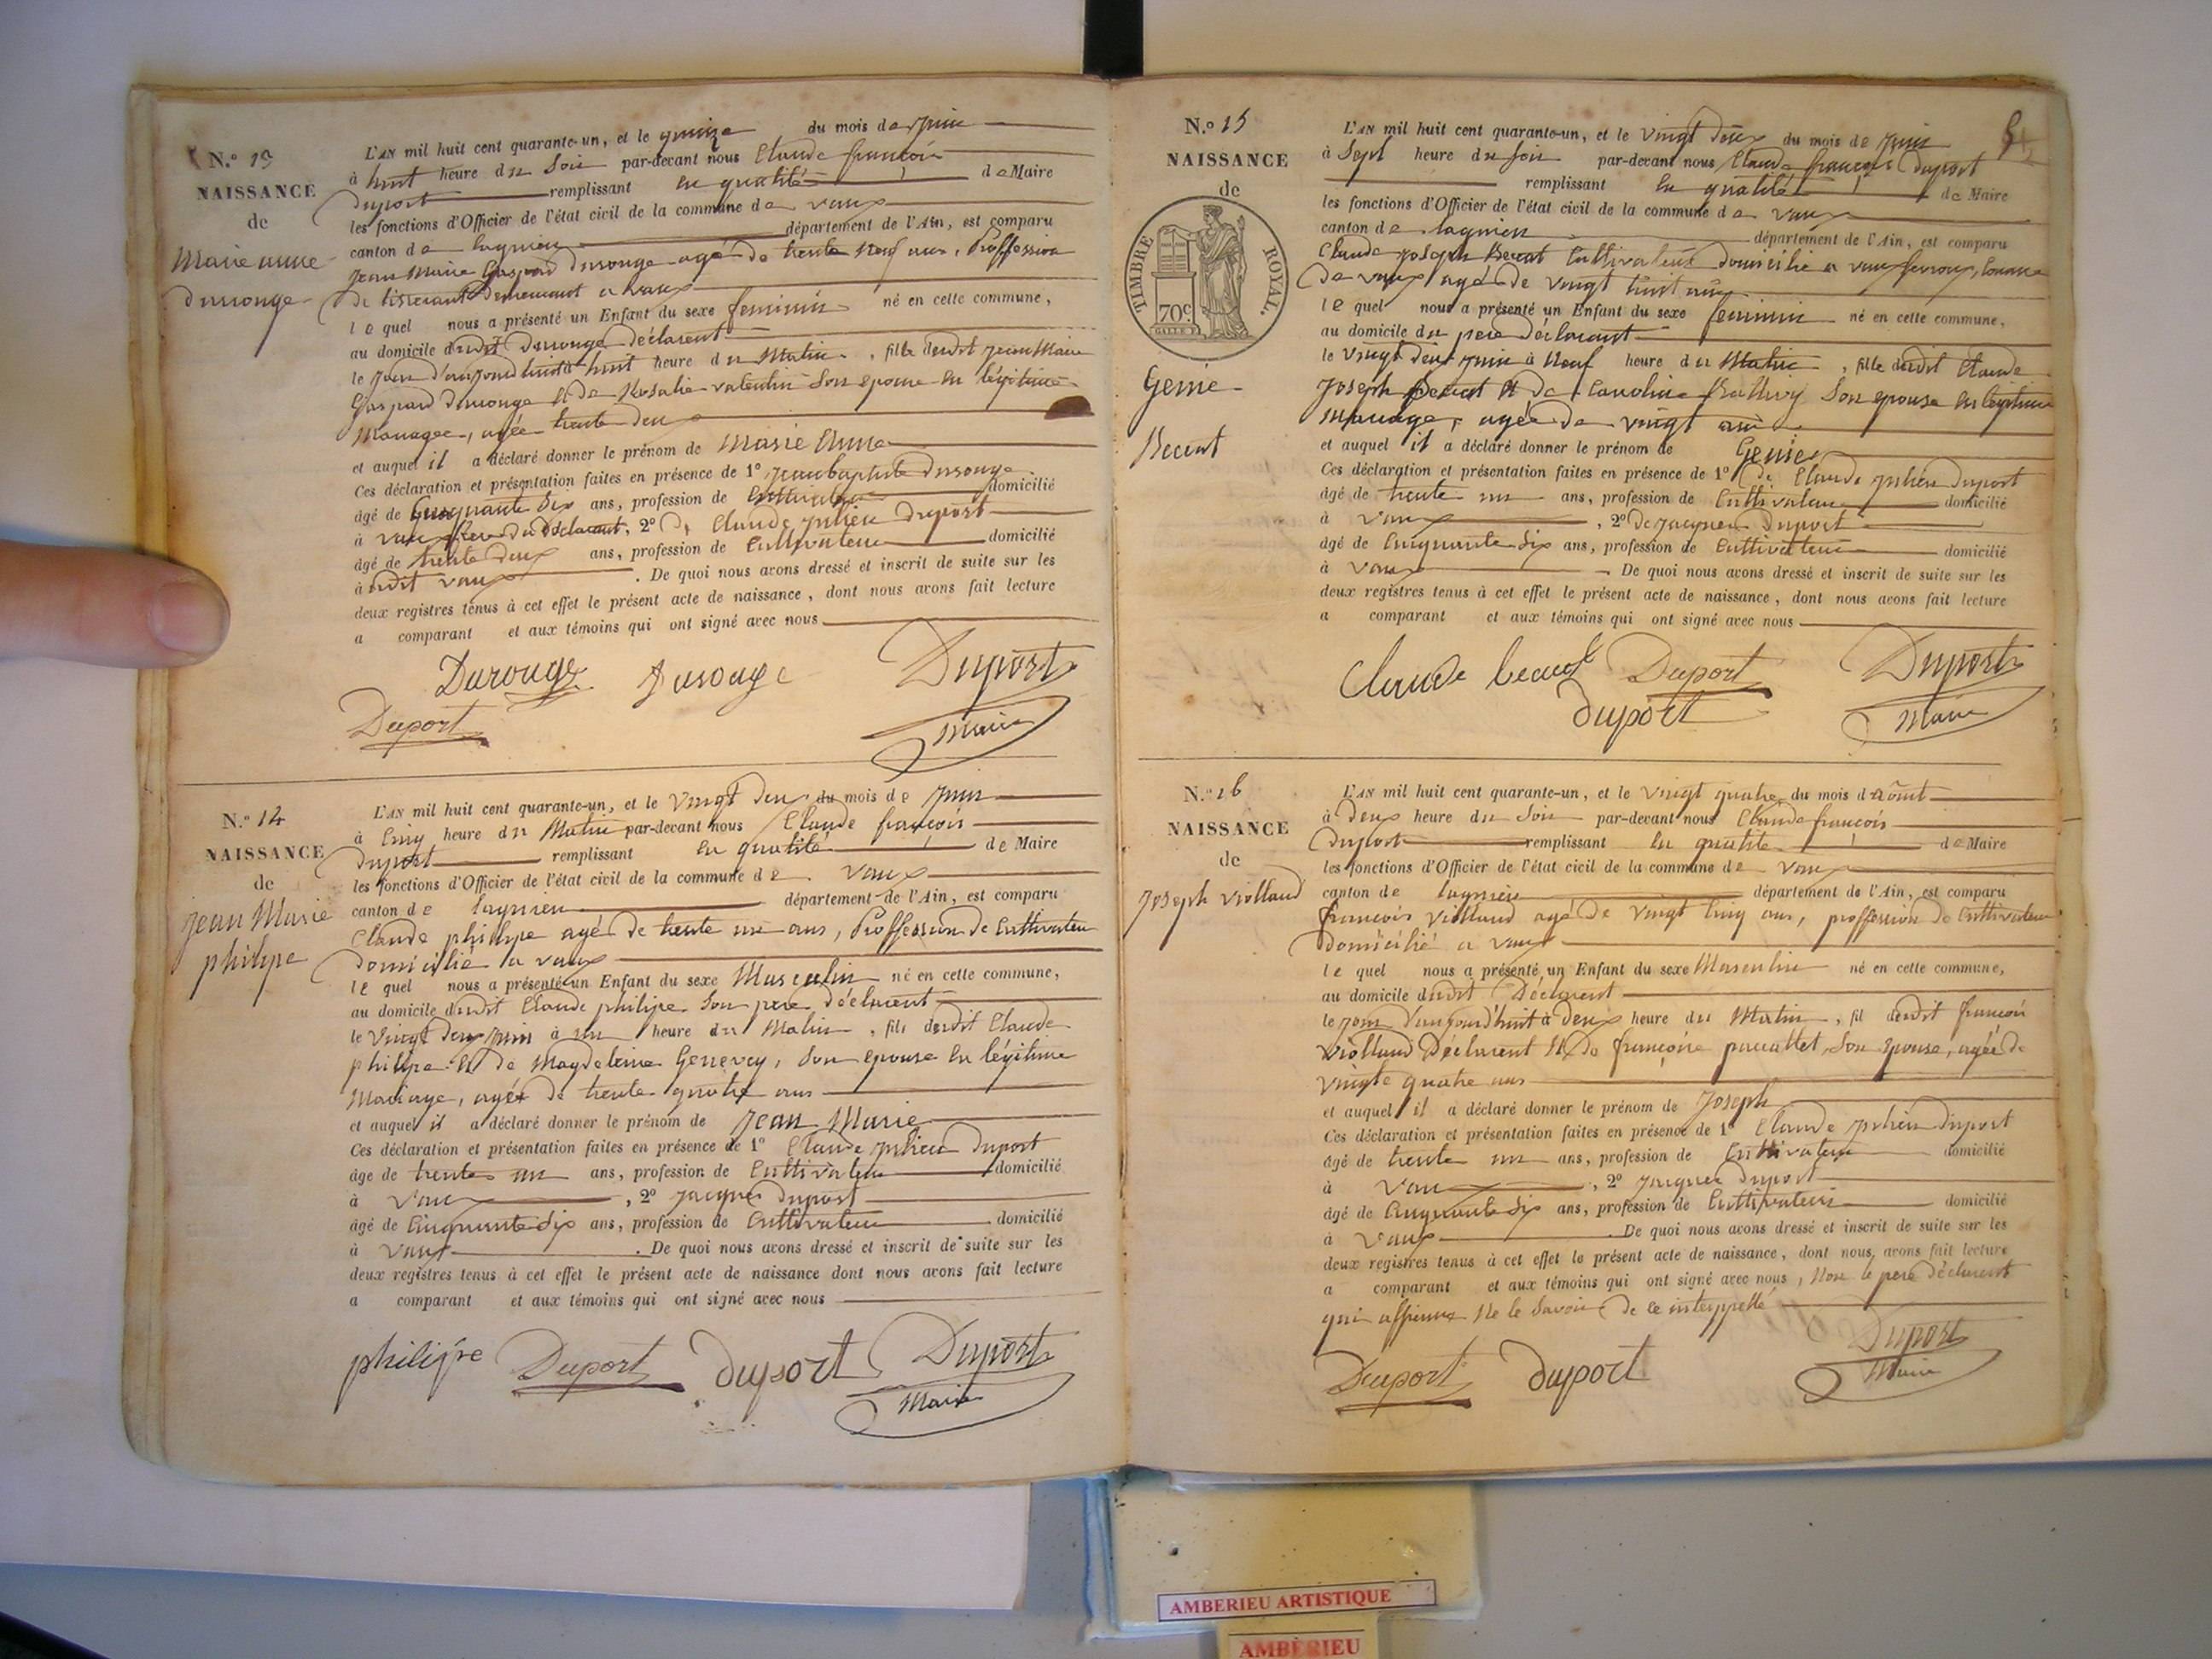 N.º 13
NAISSANCE
de
Marie anne
durouge
L'AN mil huit cent quarante-un, et le quinze du mois de juin
à huit heure du Soir par-devant nous Claude françois
duport remplissant en qualité de Maire
les fonctions d'Officier de l'état civil de la commune de vaux
canton de lagnieu département de l'Ain, est comparu
Jean Marie Gaspard durouge agé de trente Neuf ans, Proffession
de tisserant demeurant a vaux
le quel nous a présenté un Enfant du sexe feminin né en cette commune,
au domicile dudit durouge déclarent
le jour d'aujourd'huit à huit heure du Matin, fille dudit jean Marie
Gaspard durouge et de Rosalie valentin Son epouse en légitime
Mariagee, agée trente deux
et auquel il a déclaré donner le prénom de Marie Anne
Ces déclaration et présentation faites en présence de 1º jean baptiste durouge
âgé de Cinquante Six ans, profession de Cultivateur domicilié
à vaux frere du déclarent, 2º de Claude julien duport
âgé de trente deux ans, profession de Cultivateur domicilié
à dudit vaux. De quoi nous avons dressé et inscrit de suite sur les
deux registres tenus à cet effet le présent acte de naissance, dont nous avons fait lecture
a comparant et aux témoins qui ont signé avec nous
Durouge durouge Duport
Duport Maire
N.º 14
NAISSANCE
de
jean Marie
philipe
L'AN mil huit cent quarante-un, et le Vingt deux du mois de juin
à Cinq heure du Matin par-devant nous Claude françois
duport remplissant en qualité de Maire
les fonctions d'Officier de l'état civil de la commune de vaux
canton de lagnieu département de l'Ain, est comparu
Claude philipe agé de trente un ans, Proffession de Cultivateur
domicilié a vaux
le quel nous a présenté un Enfant du sexe Masculin né en cette commune,
au domicile dudit Claude philipe Son pere déclarent
le Vingt deux juin à un heure du Matin, fils dudit Claude
philipe et de Magdeleine Genevey, Son epouse en légitime
Mariage, agée de trente quatre ans
et auquel il a déclaré donner le prénom de Jean Marie
Ces déclaration et présentation faites en présence de 1º Claude julien duport
âge de trente un ans, profession de Cultivateur domicilié
à Vaux, 2º jacques duport
âgé de Cinquante Six ans, profession de Cultivateur domicilié
à Vaux. De quoi nous avons dressé et inscrit de suite sur les
deux registres tenus à cet effet le présent acte de naissance dont nous avons fait lecture
a comparant et aux témoins qui ont signé avec nous
philipe Duport duport Duport
Maire
N.º 15
NAISSANCE
de
TIMBRE ROYAL.
70c
Genie
Becent
L'AN mil huit cent quarante-un, et le vingt deux du mois de juin
à Sept heure du soir par-devant nous Claude françois duport
remplissant en qualité de Maire
les fonctions d'Officier de l'état civil de la commune de vaux
canton de lagnieu département de l'Ain, est comparu
Claude joseph Cultivateur domicilié a vaux
de vaux agé de vingt huit ans
le quel nous a présenté un Enfant du sexe feminin né en cette commune,
au domicile du pere déclarent
le vingt deux juin à Neuf heure du Matin, fille dudit Claude
Joseph et de Caroline Son epouse en légitime
Mariage, agée de vingt
et auquel il a déclaré donner le prénom de Genie
Ces déclaration et présentation faites en présence de 1º de Claude julien duport
âgé de trente un ans, profession de Cultivateur domicilié
à vaux, 2º de jacques duport
âgé de Cinquante Six ans, profession de Cultivateur domicilié
à vaux. De quoi nous avons dressé et inscrit de suite sur les
deux registres tenus à cet effet le présent acte de naissance, dont nous avons fait lecture
a comparant et aux témoins qui ont signé avec nous
Claude Duport Duport
duport Maire
N.º 16
NAISSANCE
de
Joseph Violland
L'AN mil huit cent quarante-un, et le vingt quatre du mois d aôut
à Deux heure du Soir par-devant nous Claude françois
Duport remplissant en qualité de Maire
les fonctions d'Officier de l'état civil de la commune de vaux
canton de lagnieu département de l'Ain, est comparu
françois Violland agé de vingt Cinq ans, proffession de Cultivateur
domicilié a vaux
le quel nous a présenté un Enfant du sexe Masculin né en cette commune,
au domicile dudit Déclarent
le jour d'aujourd'huit à deux heure du Matin, fil dudit françois
violland Déclarent et de françoise Son epouse, agée de
vingte quatre ans
et auquel il a déclaré donner le prénom de Joseph
Ces déclaration et présentation faites en présence de 1º Claude julien duport
âgé de trente un ans, profession de Cultivateur domicilié
à Vaux, 2º jacques duport
âgé de Cinquante Six ans, profession de Cultivateur domicilié
à Vaux. De quoi nous avons dressé et inscrit de suite sur les
deux registres tenus à cet effet le présent acte de naissance, dont nous avons fait lecture
a comparant et aux témoins qui ont signé avec nous, Non le pere déclarent
qui affirme Ne le Savoir de ce interppellé
Duport duport Duport
Maire
AMBERIEU ARTISTIQUE
AMBÈRIEU